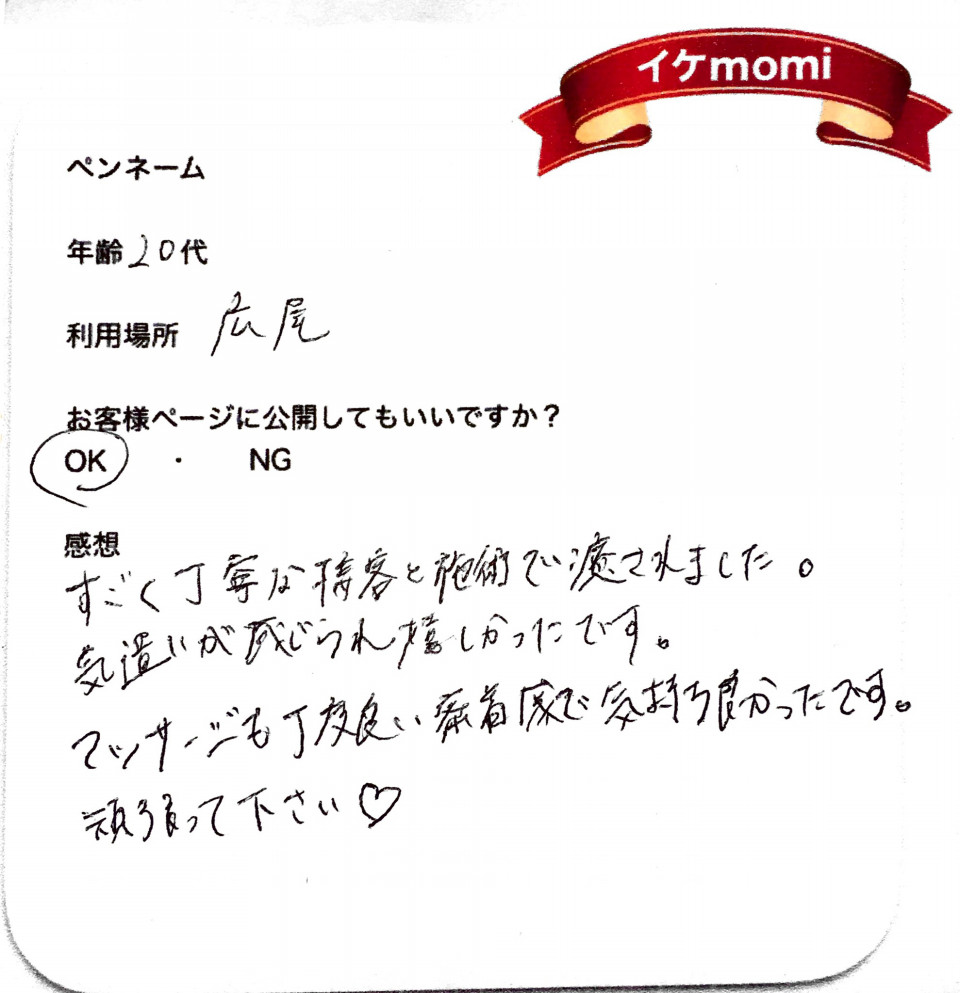 イケmomi
ペンネーム
年齢 20代
利用場所 広尾
お客様ページに公開してもいいですか？
OK ・ NG
感想
すごく丁寧な接客と施術で癒されました。
気遣いが感じられ嬉しかったです。
マッサージも丁度良い密着感で気持ち良かったです。
頑張って下さい♡